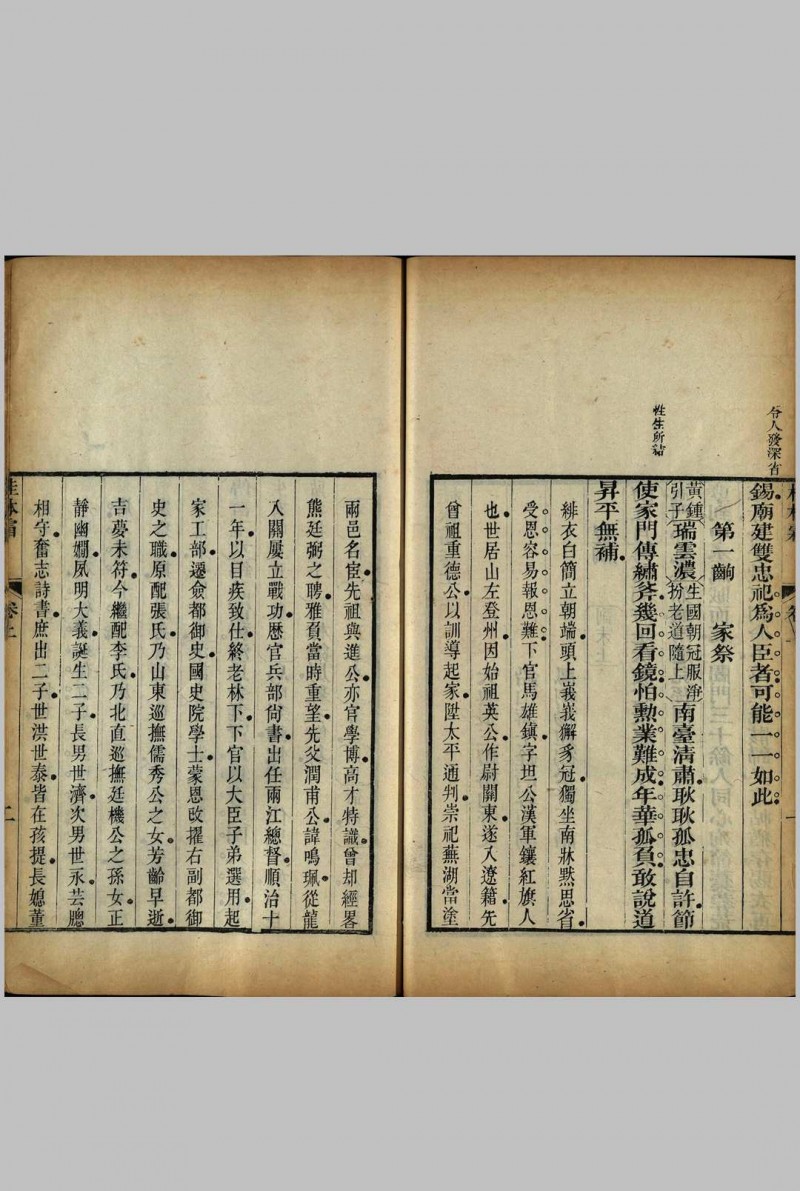 令人發深省
錫廟建雙忠祀爲人臣者可能一一如此
第一齣 家祭
黃鍾引子瑞雲濃生國朝冠服淨扮老道隨上南臺清肅耿耿孤忠自許節
性生所結
使家門傳繡斧幾回看鏡怕勲業難成年華孤負敢說道
昇平無補
緋衣白簡立朝端頭上峩峩獬豸冠獨坐南牀黙思省
受恩容易報恩難下官馬雄鎮字坦公漢軍鑲紅旗人
也世居山左登州因始祖英公作尉關東遂入遼籍先
曾祖重德公以訓導起家陞太平通判崇祀蕪湖當塗
兩邑名宦先祖與進公亦官學博高才特識曾却經畧
熊廷弼之聘雅負當時重望先父潤甫公諱鳴珮從龍
入關屢立戰功歷官兵部尙書出任兩江總督順治十
一年以目疾致仕終老林下下官以大臣子弟選用起
家工部遷僉都御史國史院學士蒙恩改擢右副都御
史之職原配張氏乃山東巡撫儒秀公之女芳齡早逝
吉夢未符今繼配李氏乃北直巡撫廷機公之孫女正
靜幽嫺夙明大義誕生二子長男世濟次男世永芸牕
相守奮志詩書庶出二子世洪世泰皆在孩提長媳董
卷上
二